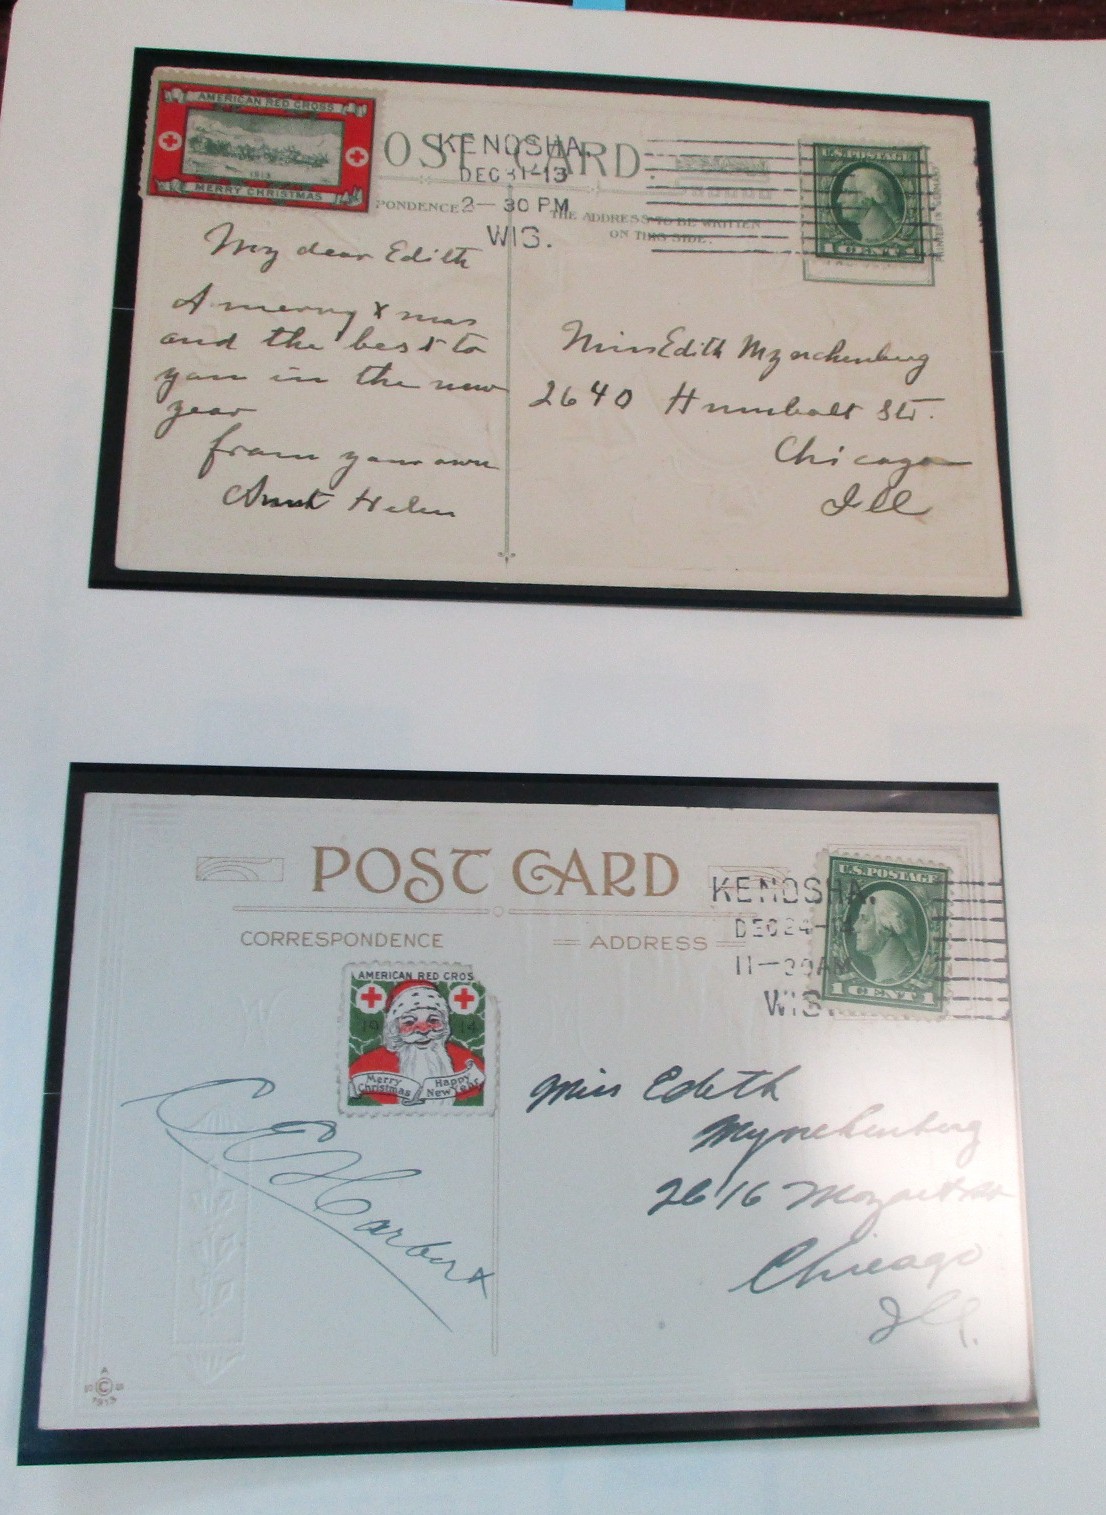 AMERICAN RED CROSS
1913
MERRY CHRISTMAS
POST CARD.
KENOSHA.
DEC 31-13
2-30 PM
WIS.
PONDENCE
THE ADDRESS TO BE WRITTEN
ON THIS SIDE.
U.S. POSTAGE
1 CENT 1
My dear Edith
A merry Xmas
and the best to
you in the new
year
from your own
Aunt Helen
Miss Edith
2640 Humbolt St.
Chicago
Ill
POST CARD
CORRESPONDENCE
ADDRESS
KENOSHA.
DEC 24-14
11-30AM
WIS.
U.S. POSTAGE
1 CENT 1
AMERICAN RED CROS
1914
Merry Christmas
Happy New Year
C E Harbert
Miss Edeth
2616 Mozart
Chicago
Ill.
A
C
1913